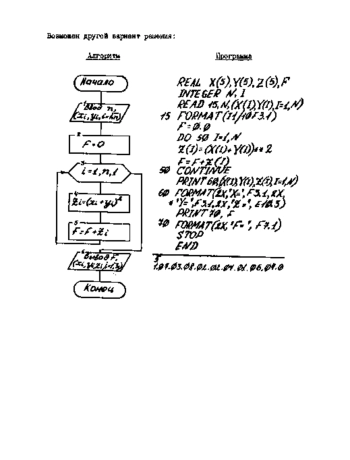 Возможен другой вариант решения:
Алгоритм
Программа
Начало
1
Ввод n,
(xi, yi, i=1,n)
2
F=0
3
i=1,n,1
4
Zi=(xi+yi)²
5
F=F+Zi
6
Вывод F,
Конец
REAL X(5),Y(5),Z(5),F
INTEGER N,I
READ 15,N,(X(I),Y(I),I=1,N)
15 FORMAT(I1/10F3.1)
F=0.0
DO 50 I=1,N
Z(I)=(X(I)+Y(I))**2
F=F+Z(I)
50 CONTINUE
PRINT 60,(X(I),Y(I),Z(I),I=1,N)
60 FORMAT(2X,'X=',F3.1,2X,
*'Y=',F3.1,2X,'Z=',E10.3)
PRINT 70, F
70 FORMAT(2X,'F=',F7.1)
STOP
END